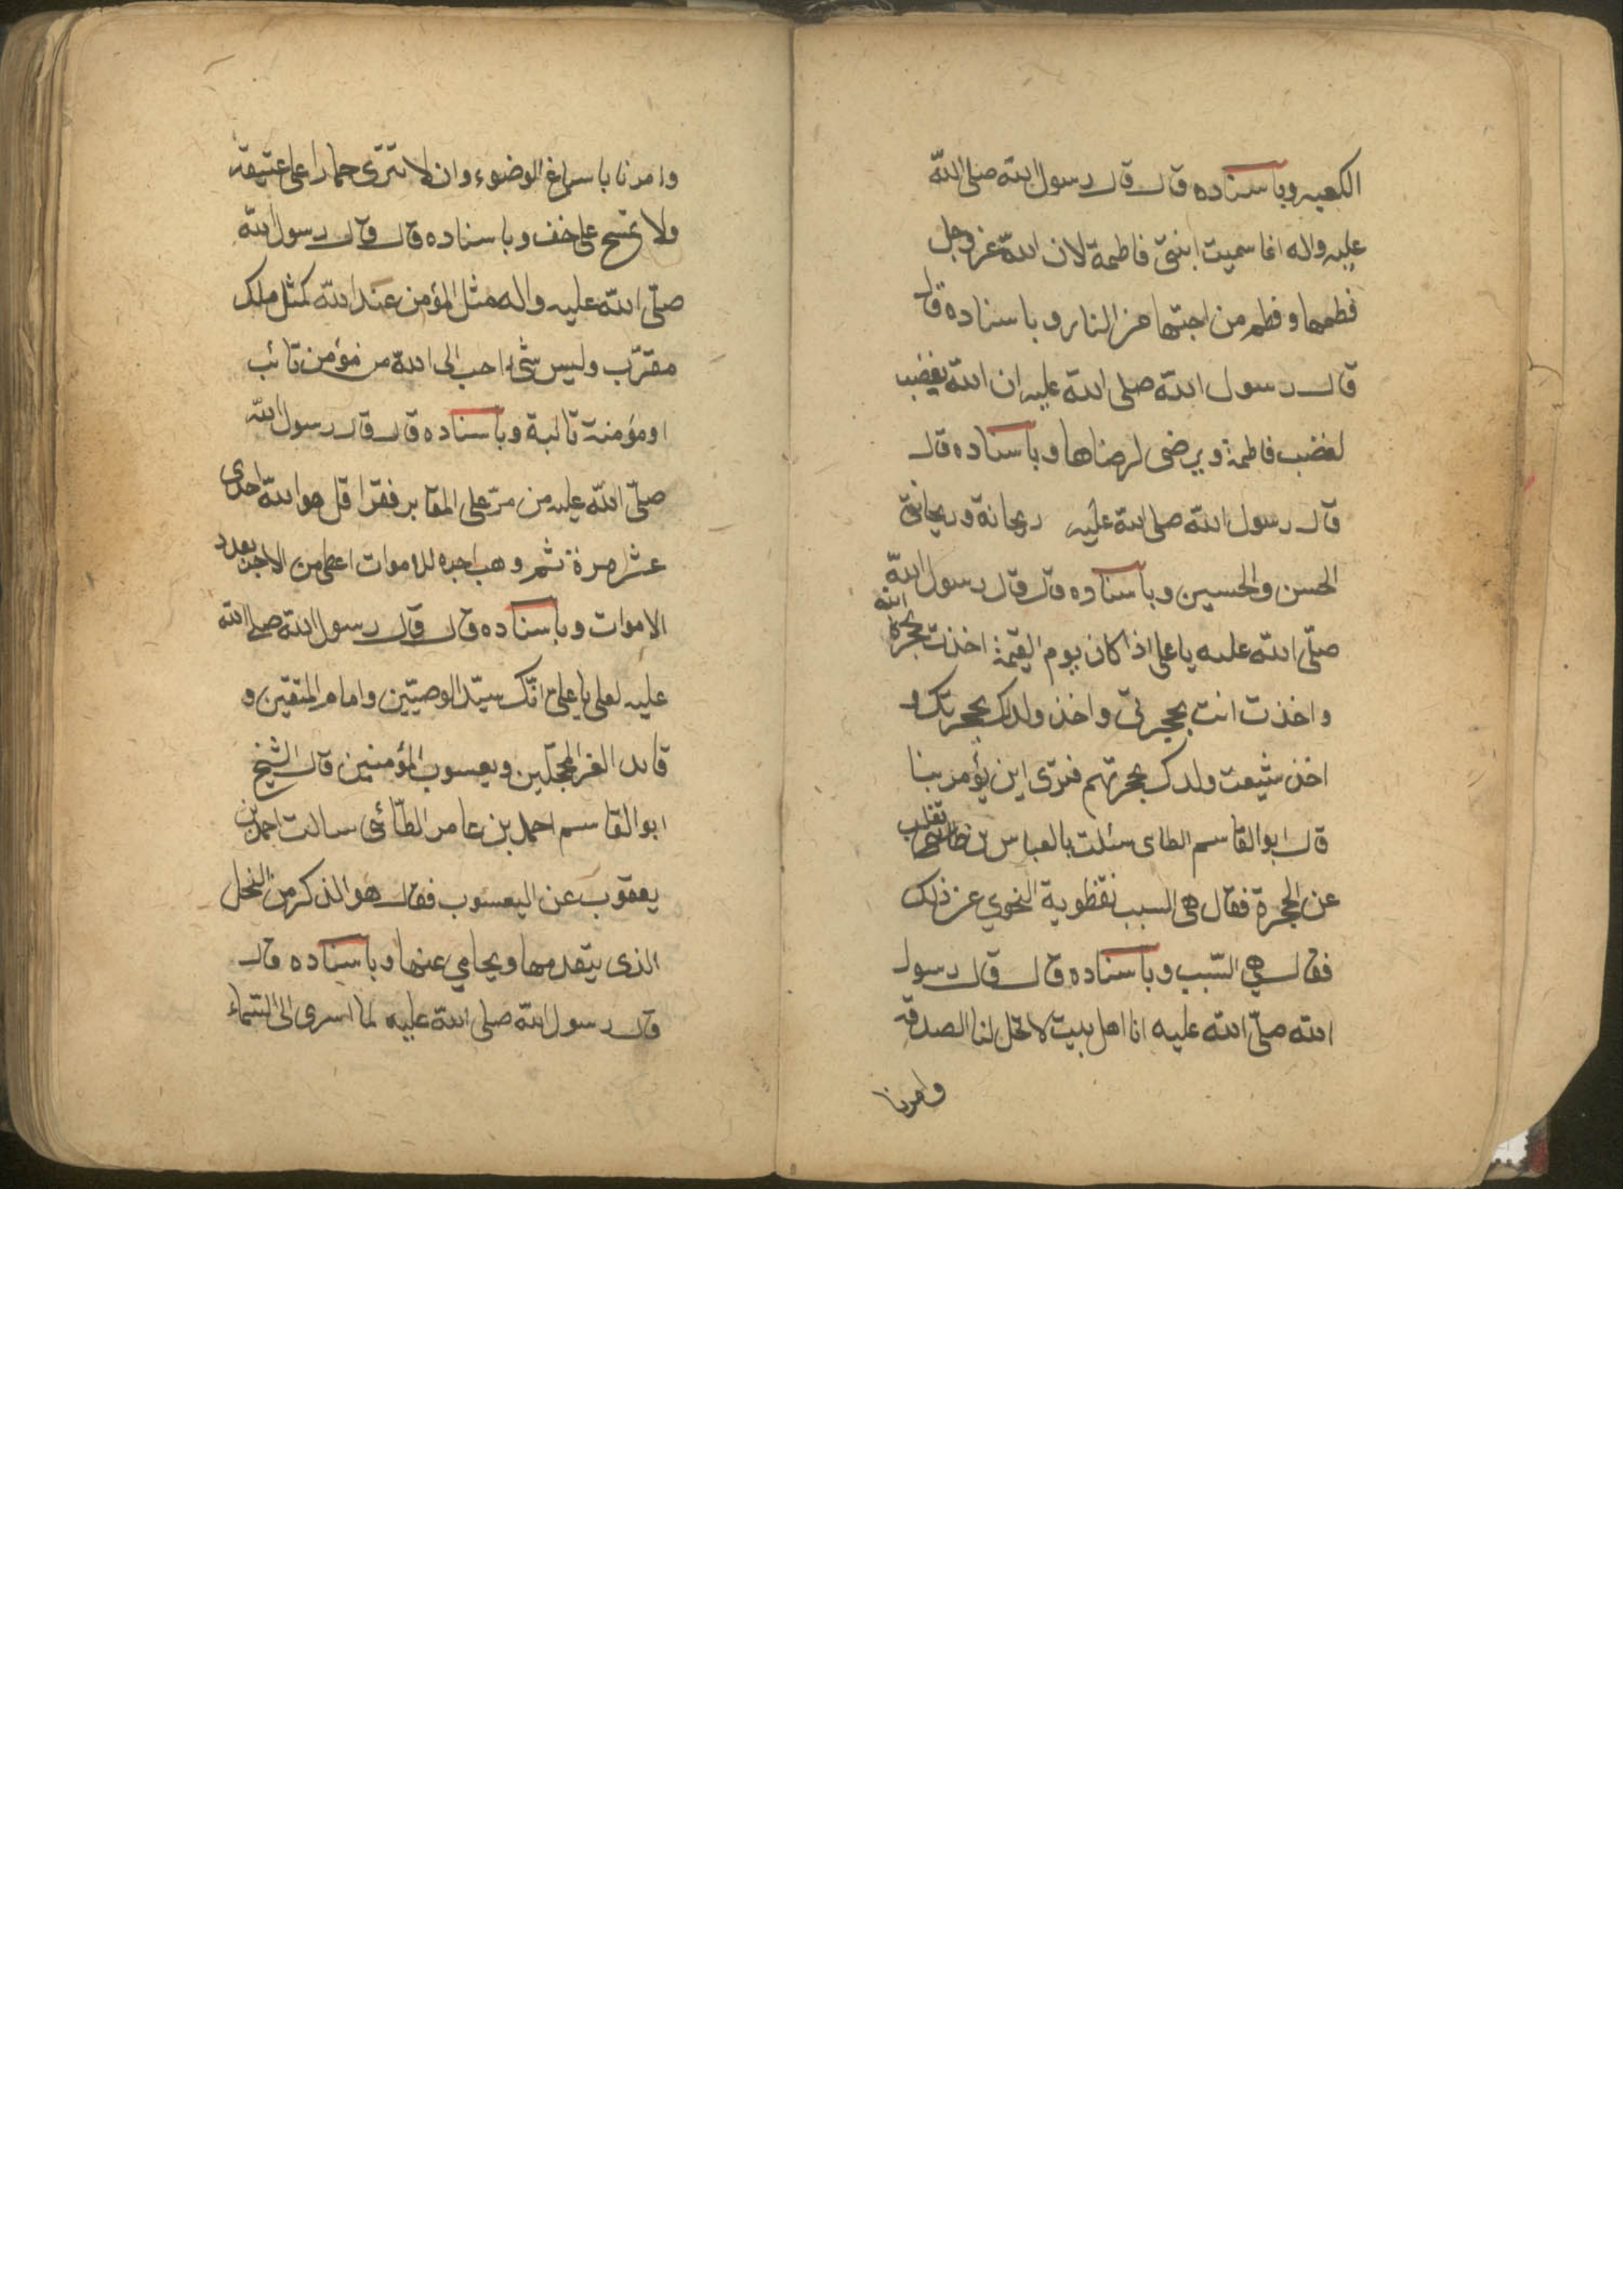 الكعبه وباسناده قال قال رسول الله صلى الله
عليه واله انما سميت ابنتى فاطمة لان الله عز وجل
فطمها وفطم من احبها من النار وباسناده قال
قال رسول الله صلى الله عليه ان الله يغضب
لغضب فاطمة ويرضى لرضاها وباسناده قال
قال رسول الله صلى الله عليه ريحانة وريحانتى
الحسن والحسين وباسناده قال قال رسول الله
صلّى الله عليه ياعلى اذا كان يوم القيمة اخذت بحجزة الله
واخذت انت بحجزتى واخذ ولدك بحجزتك و
اخذ شيعت ولدك بحجزتهم فترى اين يؤمر بنا
قال ابو القاسم الطاى سئلت بالعباس بن ثعلب
عن الحجزة فقال هى السبب نفطوية النحوي عن ذلك
فقال هي السّبب وباسناده قال قال رسول
الله صلّى الله عليه انا اهل بيت لا تحل لنا الصدقه
وامرنا
وامرنا باسباغ الوضوء وان لا نترى حمارا على عتيقة
ولا نمسح على خف وباسناده قال قال رسول الله
صلّى الله عليه واله مثل المؤمن عند الله كمثل ملك
مقرّب وليس شئ احب الى الله من مؤمن تائب
او مؤمنة تائبة وباسناده قال قال رسول الله
صلّى الله عليه من مرّ على المقابر فقرا قل هو الله احد احدى
عشر مرة ثم وهب اجره للاموات اعطى من الاجر بعدد
الاموات وباسناده قال قال رسول الله صلى الله
عليه لعلى ياعلى انّك سيّد الوصيّين وامام المتقين و
قائد الغر المحجّلين ويعسوب المؤمنين قال الشيخ
ابو القاسم احمد بن عامر الطّائى سالت احمد بن
يعقوب عن اليعسوب فقال هو الذكر من النحل
الذى يتقدمها ويحامي عنها وباسناده قال
قال رسول الله صلى الله عليه لما اسرى الى السّماء